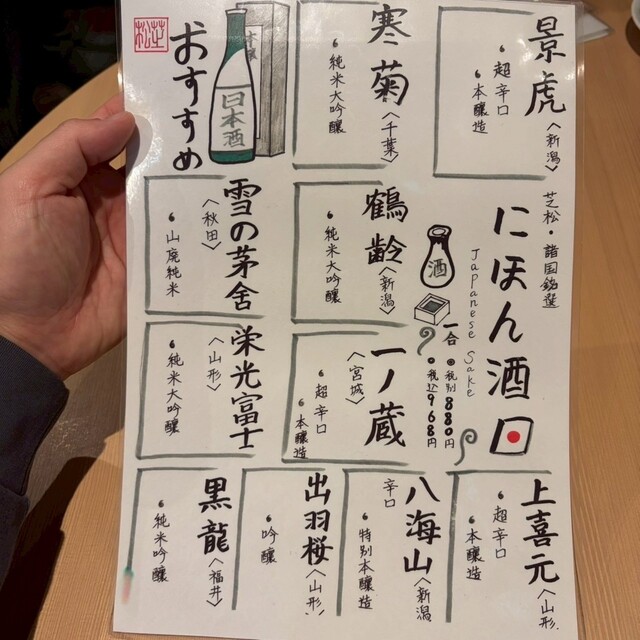 芝松・諸国銘選
にほん酒
Japanese Sake
酒
一合
税別880円
税込968円
景虎
〈新潟〉
超辛口
本醸造
寒菊
〈千葉〉
純米大吟醸
日本酒
おすすめ
芝松
鶴齢
〈新潟〉
純米大吟醸
雪の茅舎
〈秋田〉
山廃純米
一ノ蔵
〈宮城〉
超辛口
本醸造
栄光冨士
〈山形〉
純米大吟醸
上喜元
〈山形〉
超辛口
本醸造
八海山
〈新潟
辛口
特別本醸造
出羽桜
〈山形〉
吟醸
黒龍
〈福井〉
純米吟醸